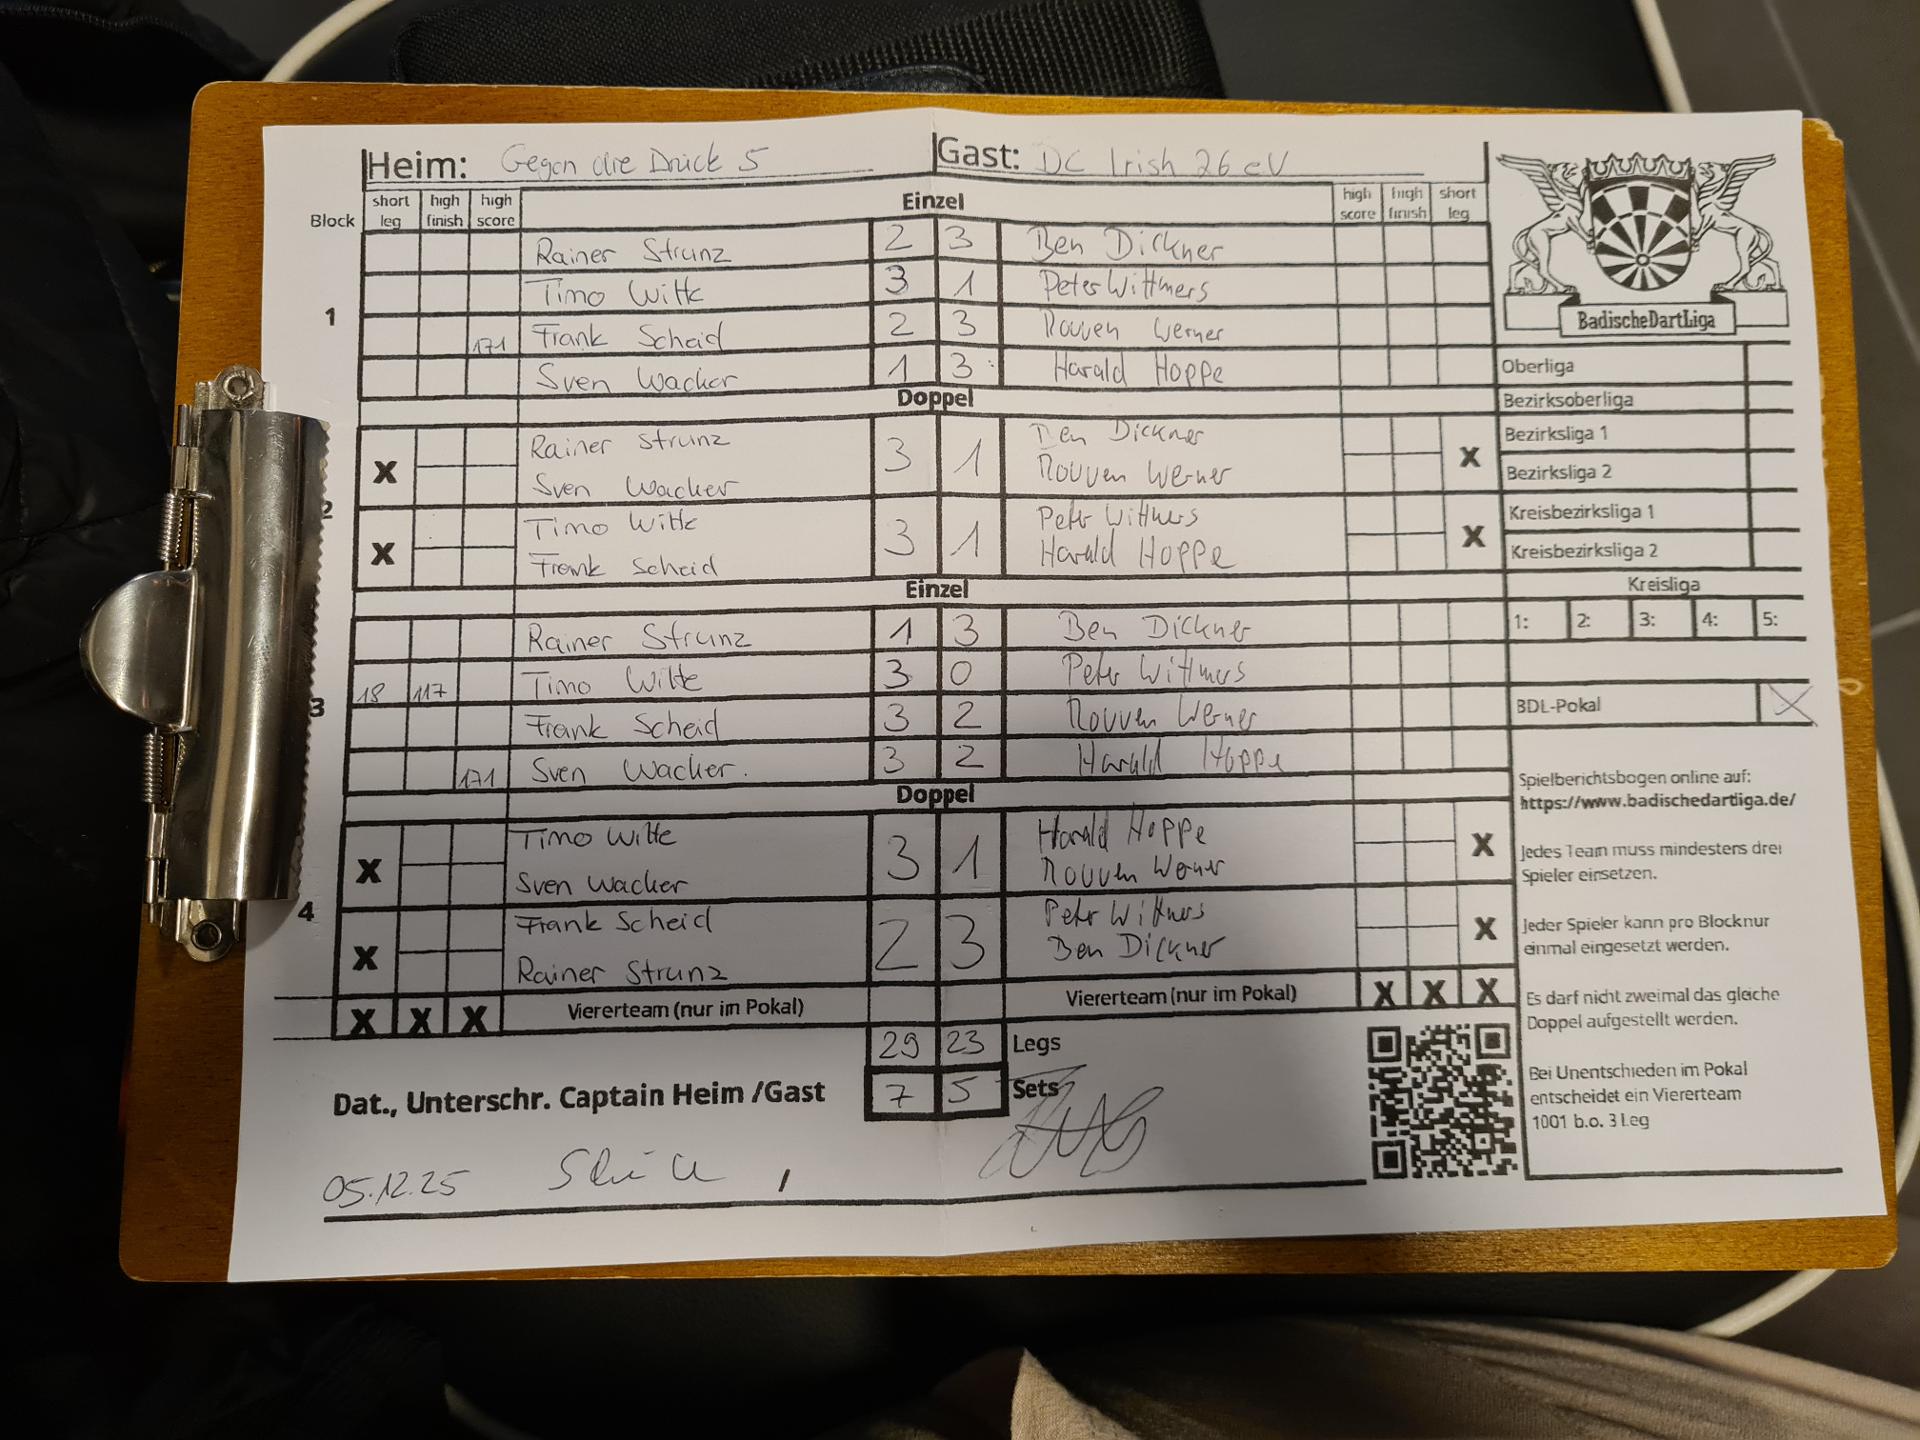 Heim: Gegen die Drück 5 Gast: DC Irish 26 eV
Block short leg high finish high score Einzel high score high finish short leg
Rainer Strunz 2 3 Ben Dickner
1 Timo Witte 3 1 Peter Wittmers
171 Frank Scheid 2 3 Rouven Werner
Sven Wacker 1 3 Harald Hoppe
Doppel
X Rainer Strunz 3 1 Ben Dickner X
Sven Wacker Rouven Werner
2
X Timo Witte 3 1 Peter Wittmers X
Frank Scheid Harald Hoppe
Einzel
Rainer Strunz 1 3 Ben Dickner
18 117 Timo Witte 3 0 Peter Wittmers
3 Frank Scheid 3 2 Rouven Werner
171 Sven Wacker 3 2 Harald Hoppe
Doppel
X Timo Witte 3 1 Harald Hoppe X
Sven Wacker Rouven Werner
4
X Frank Scheid 2 3 Peter Wittmers X
Rainer Strunz Ben Dickner
X X X Viererteam (nur im Pokal) Viererteam (nur im Pokal) X X X
29 23 Legs
7 5 Sets
Dat., Unterschr. Captain Heim /Gast
05.12.25 /
BadischeDartLiga
Oberliga
Bezirksoberliga
Bezirksliga 1
Bezirksliga 2
Kreisbezirksliga 1
Kreisbezirksliga 2
Kreisliga
1: 2: 3: 4: 5:
BDL-Pokal X
Spielberichtsbogen online auf:
https://www.badischedartliga.de/
Jedes Team muss mindestens drei
Spieler einsetzen.
Jeder Spieler kann pro Blocknur
einmal eingesetzt werden.
Es darf nicht zweimal das gleiche
Doppel aufgestellt werden.
Bei Unentschieden im Pokal
entscheidet ein Viererteam
1001 b.o. 3 Leg